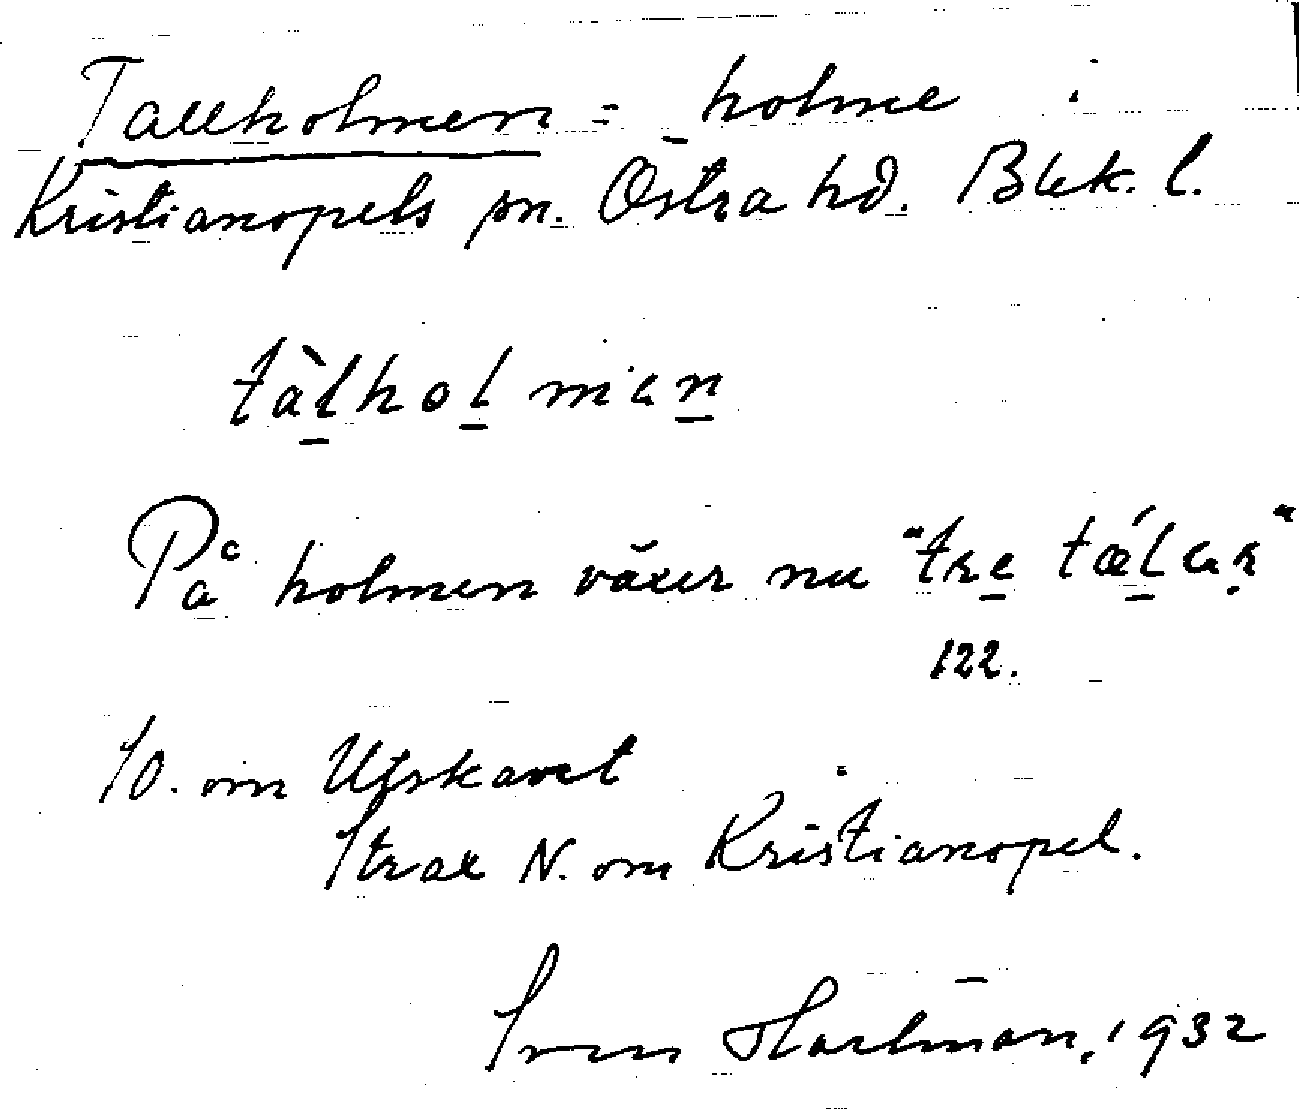 Tallholmen = holme i
Kristianopels sn. Östra hd. Blek. l.
tàlholmen
På holmen växer nu "tre tǽlar"
122.
SO. om Utskaret
Strax N. om Kristianopel.
Sven Hartman, 1932